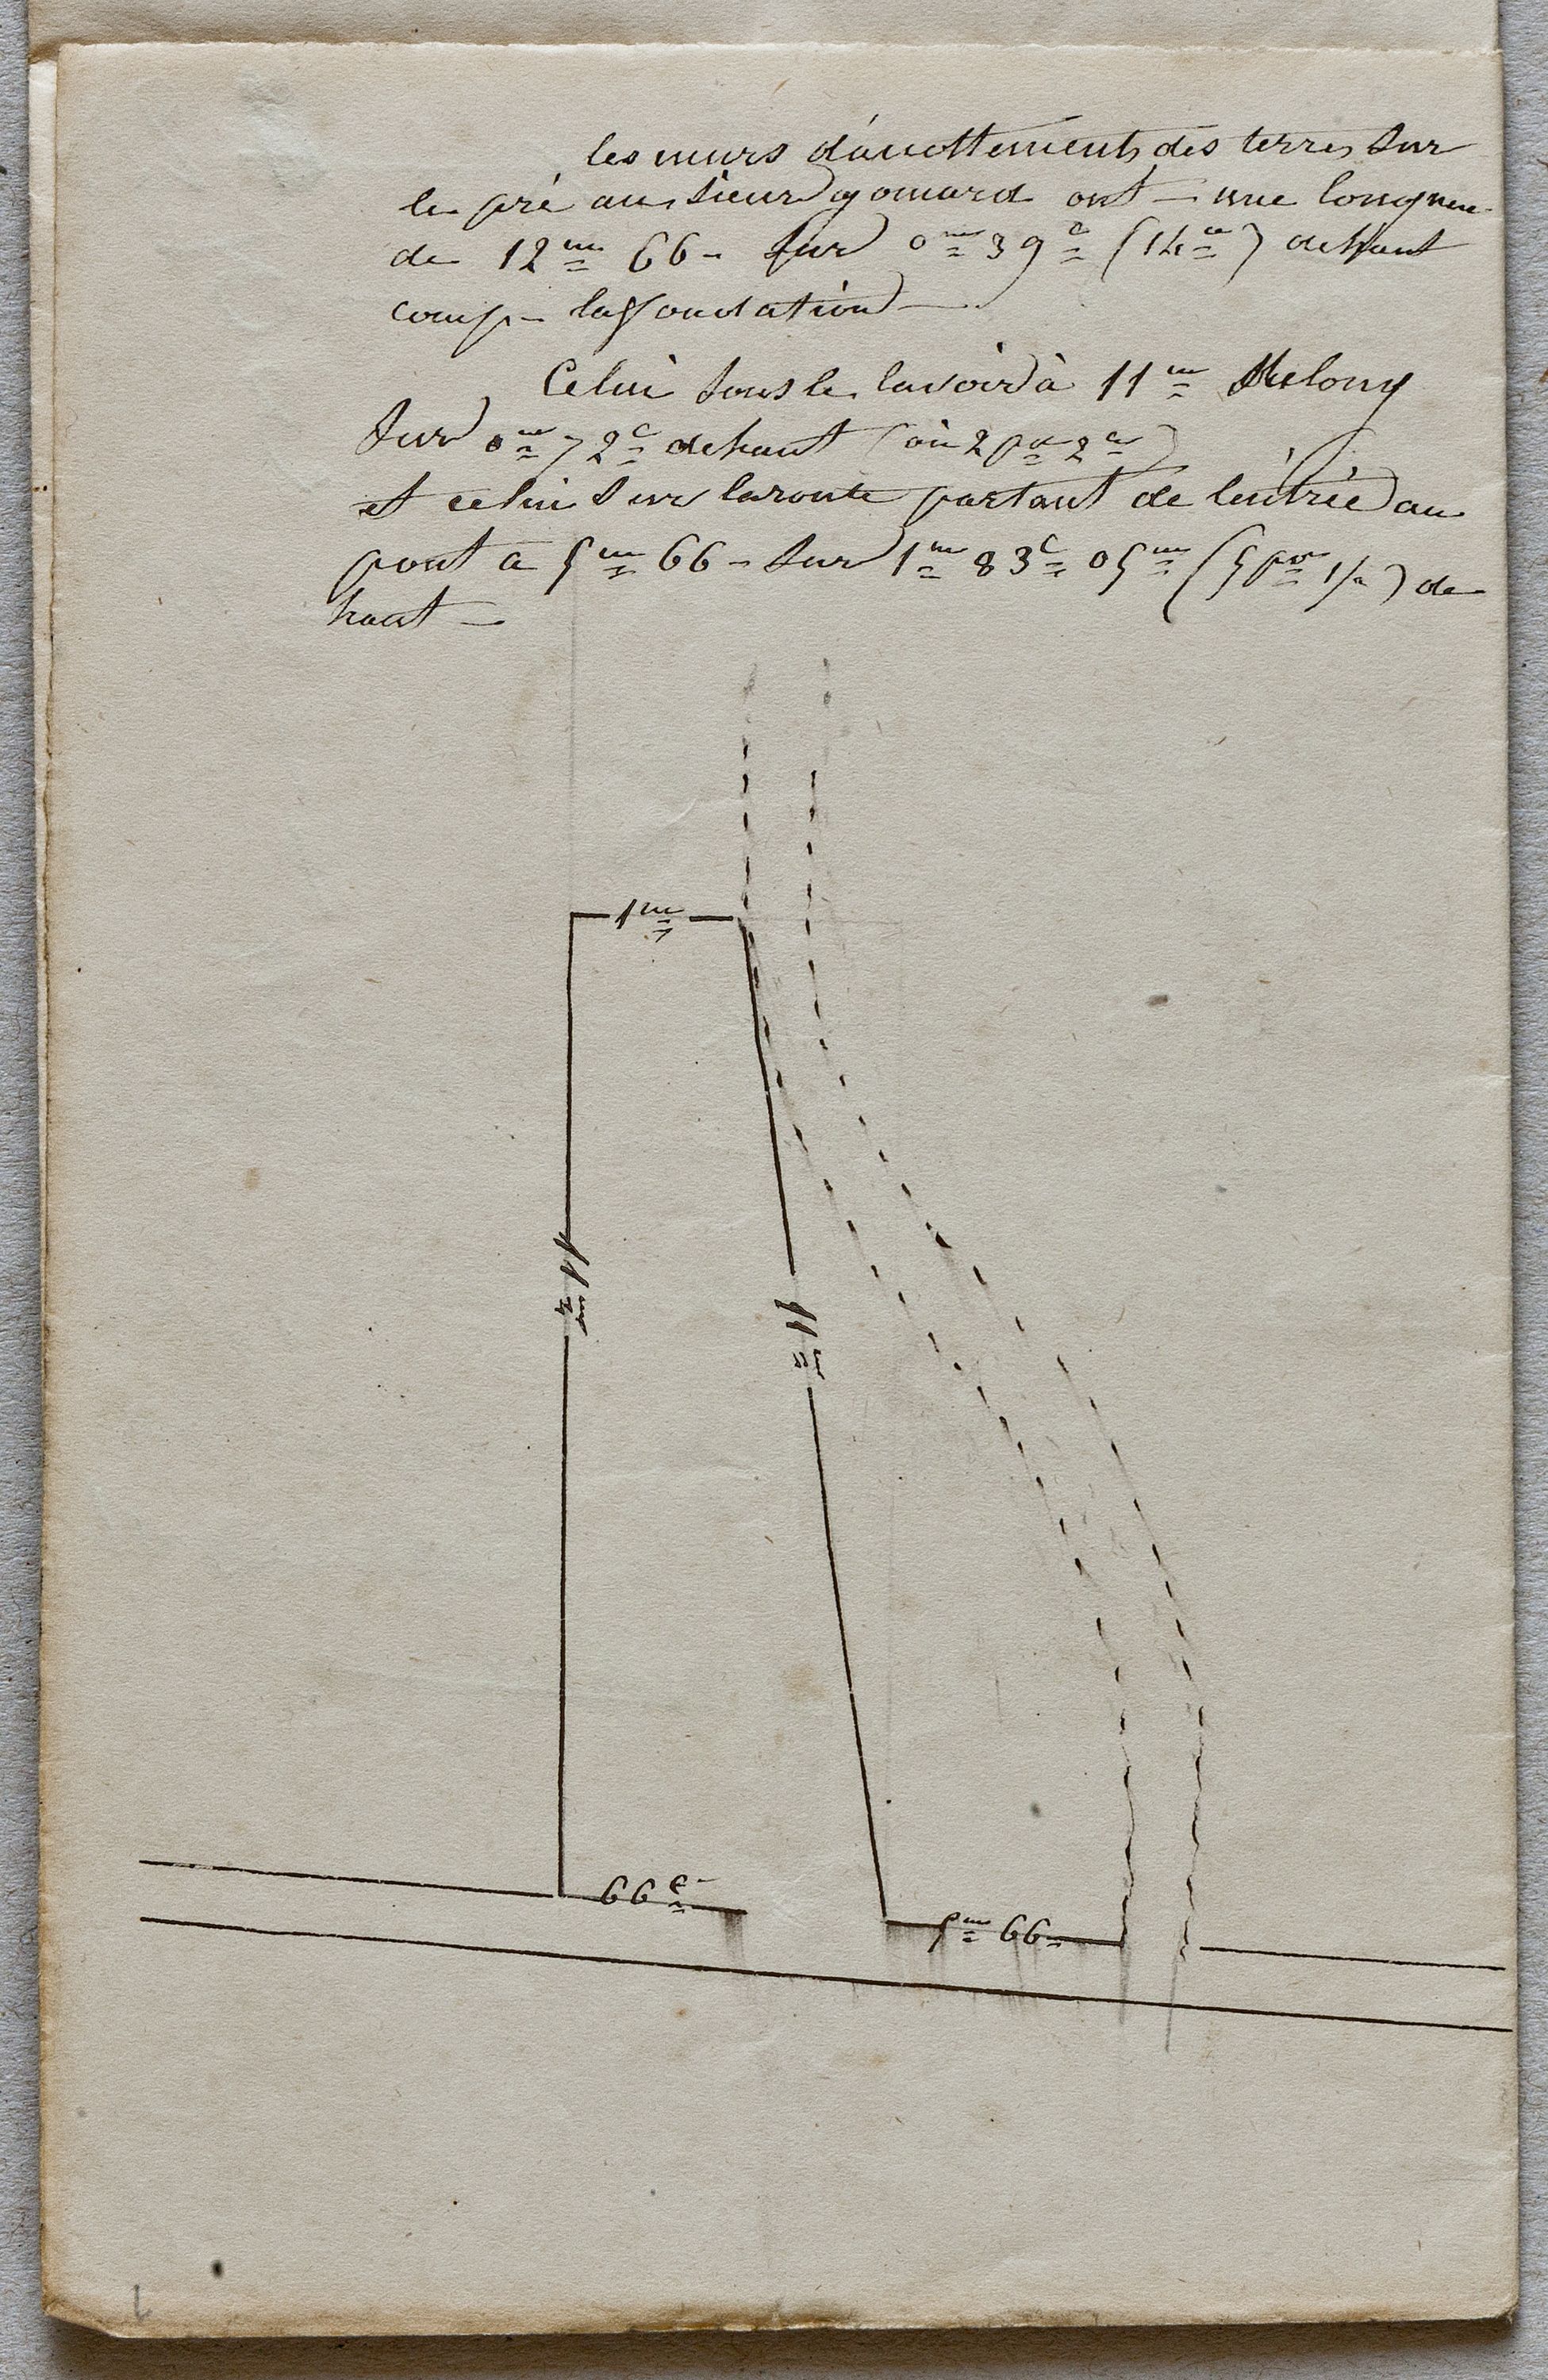 les murs d'acottements des terres sur
le pré au sieur gomard ont – une longueur
de 12m 66 – sur 0m 39c (14ce) de haut
comp – la fondation –
Celui sous le lavoir à 11m de long
sur 0m 72c de haut (ou 2pds 2ces)
et celui sur la route partant de l'entrée au
pont a 5m 66 – sur 1m 83c 05m (5pds 1/2) de
haut –
1m
11m
11m
66c
5m 66